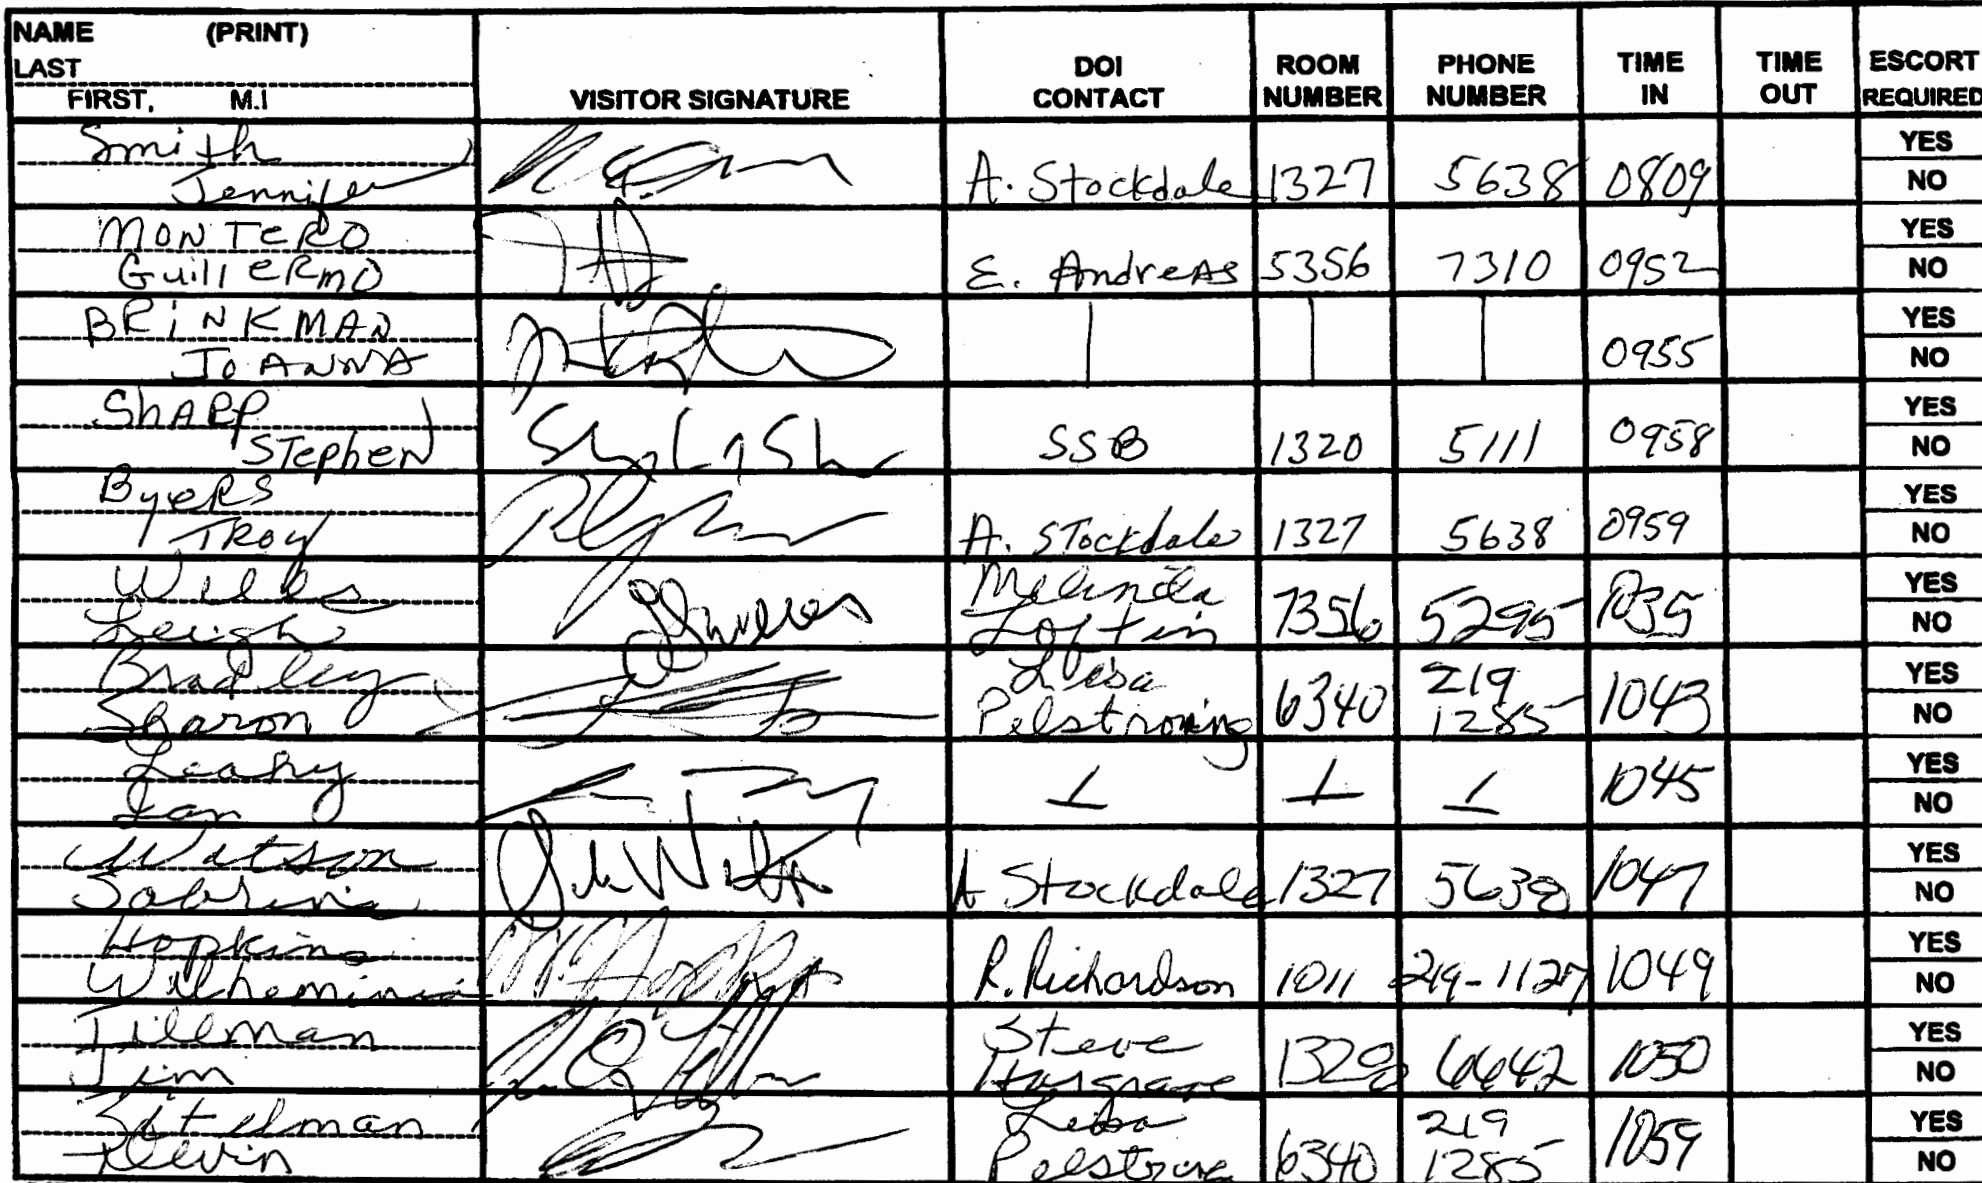 NAME (PRINT)
LAST
FIRST, M.I
VISITOR SIGNATURE
DOI CONTACT
ROOM NUMBER
PHONE NUMBER
TIME IN
TIME OUT
ESCORT REQUIRED
Smith
Jennifer
A. Stockdale 1327 5638 0809
YES
NO
MONTERO
GuillERMO
E. AndreAS 5356 7310 0952
YES
NO
BRiNKMAN
JoANNA
0955
YES
NO
ShARP
STephen
SSB 1320 5111 0958
YES
NO
ByeRS
TRoy
A. STockdale 1327 5638 0959
YES
NO
Leigh
Melinda
Loftin
7356 5295 1035
YES
NO
Bradley
Sharon
Lisa
6340 219
1285
1043
YES
NO
Leahy
Ian
1045
YES
NO
Watson
Sabrina
A Stockdale 1327 5638 1047
YES
NO
Hopkins
R. Richardson 1011 219-1127 1049
YES
NO
Tillman
Jim
Steve
Hargrave
6642 1050
YES
NO
Lisa
6340 219
1285
1059
YES
NO